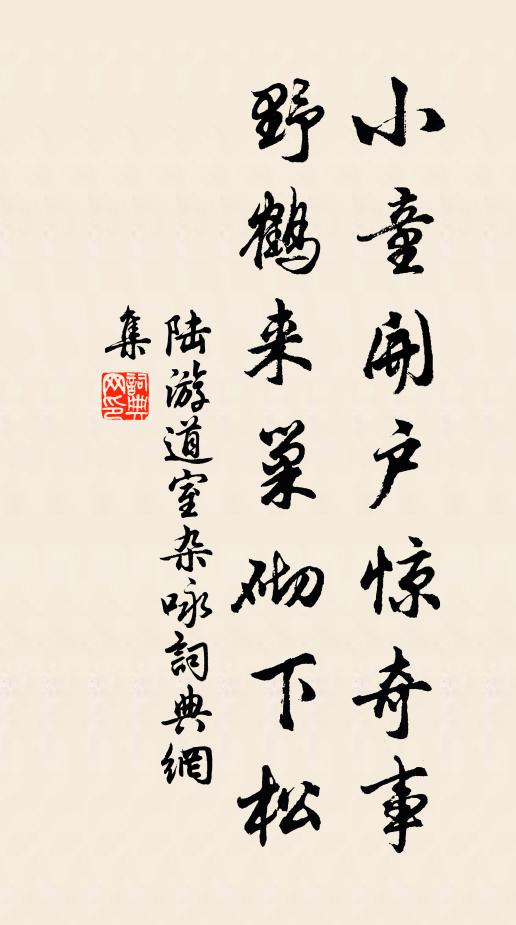 小童開户惊奇事
野鹤来巢砌下松
陆游道室杂咏詞典網
集
詞典
网印